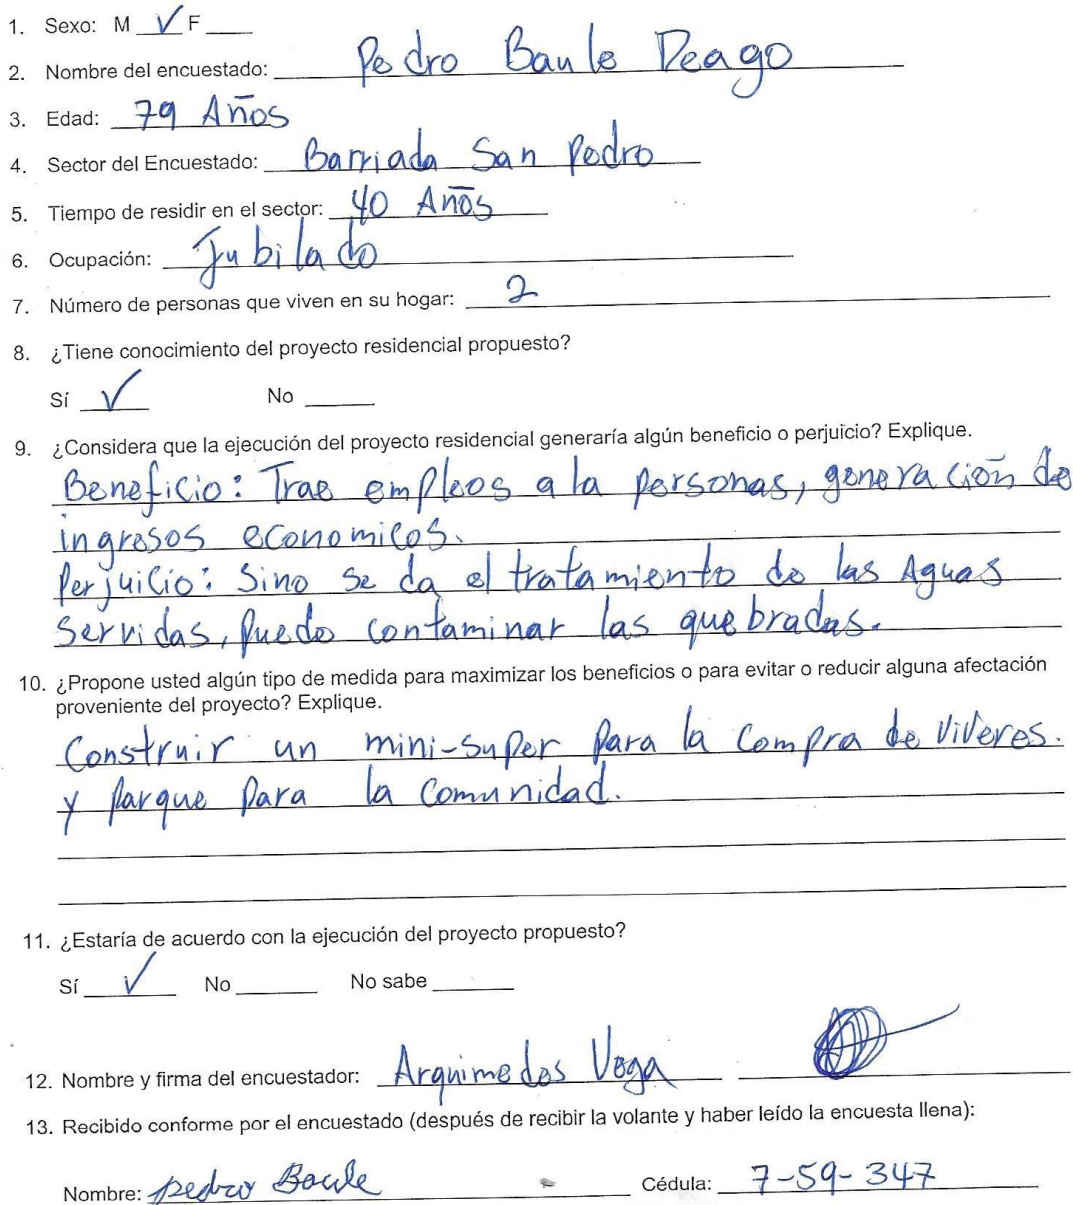 1. Sexo: M √ F
2. Nombre del encuestado: Pedro Baule Deago
3. Edad: 79 Años
4. Sector del Encuestado: Barriada San Pedro
5. Tiempo de residir en el sector: 40 Años
6. Ocupación: Jubilado
7. Número de personas que viven en su hogar: 2
8. ¿Tiene conocimiento del proyecto residencial propuesto?
Sí √ No
9. ¿Considera que la ejecución del proyecto residencial generaría algún beneficio o perjuicio? Explique.
Beneficio: Trae empleos a la personas, generación de
ingresos economicos.
Perjuicio: Sino se da el tratamiento de las Aguas
servidas, Puede contaminar las quebradas.
10. ¿Propone usted algún tipo de medida para maximizar los beneficios o para evitar o reducir alguna afectación
proveniente del proyecto? Explique.
Construir un mini-super para la compra de viveres.
y parque para la comunidad.
11. ¿Estaría de acuerdo con la ejecución del proyecto propuesto?
Sí √ No No sabe
12. Nombre y firma del encuestador: Arquimedes Vega
13. Recibido conforme por el encuestado (después de recibir la volante y haber leído la encuesta llena):
Nombre: Pedro Baule Cédula: 7-59-347